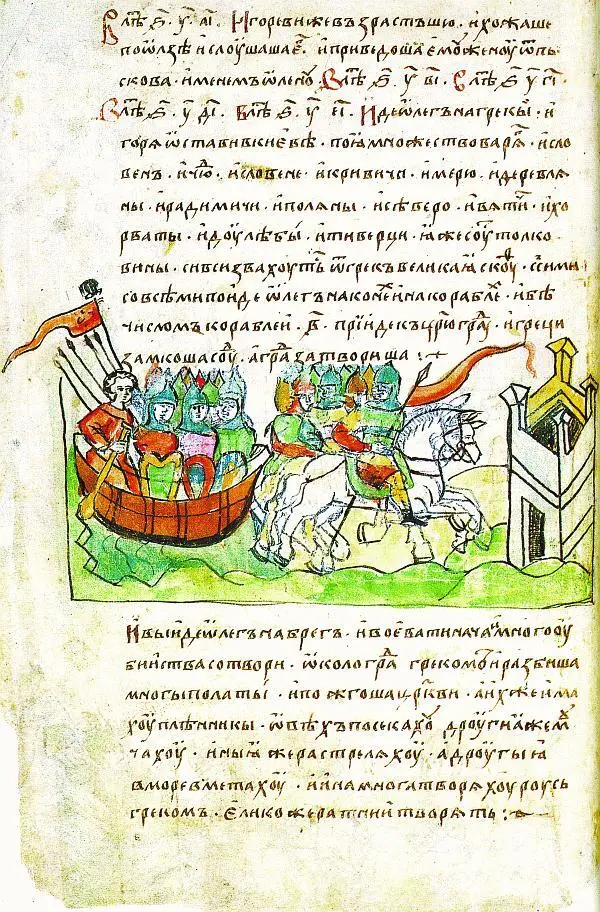 В лѣⷮ ҂ѕ҃. у҃. а҃і. Игоревижевъзрастъшю. ихожаше
поѡлзѣ ислоушашаеⷢ. иприведошаемоуженоуѿпь
скова. именемъѡленоу. В лѣⷮ ҂ѕ҃. у҃. в҃і. В лѣⷮ ҂ѕ҃. у҃. г҃і.
В лѣⷮ ҂ѕ҃. у҃. д҃і. В лѣⷮ ҂ѕ҃. у҃. е҃і. Идеѡлегънагрекы. и
горяѡставивкиевѣ. поимножествоваряⷢ. исло
венъ. ичюⷣ. исловене. икривичи. имерю. идеревля
ны. ирадимичи. иполяны. исѣверо. ивятиⷱ. ихо
рваты. идоулѣбы. итиверци. ꙗжесоуⷮтолко
вины. сивсизвахоутьⷭ ѿгрекъвеликаꙗскоуⷴ. ссими
совсѣмипоидеѡлегънаконеⷯинакораблеⷯ. ибѣ
числомъкораблеи. ҂в҃. прїидекъцрюграⷣу. игреци
замкошасоуⷣ. аграⷣзатвориша
ивыидеѡлегънабрегъ. ивоеватинача. имногооу
биистваⷭотвори. ѡколограⷣ грекомъ. иразбиша
многыполаты. ипожгошацр҃кви. аихжеима
хоуплѣнникы. ѡвѣхъпосекахоу дроугиꙗжемⷱу
чахоу. иныꙗжерастреляхоу. адроугыꙗ
вморевметахоу. иинамногатворяхоуроусь
грекомъ. еликожератнии творять